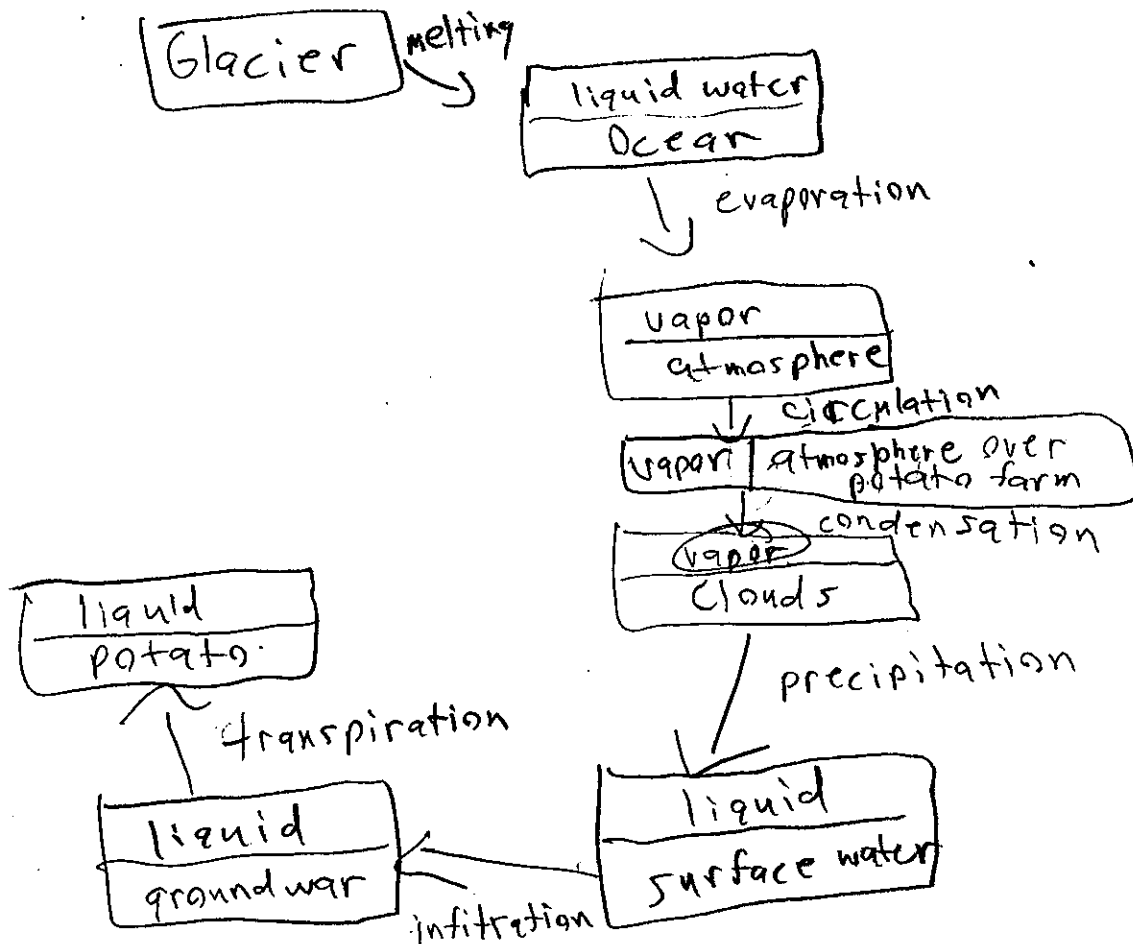 Glacier
melting
liquid water
Ocear
evaporation
vapor
atmosphere
circulation
vapor
atmosphere over
potato farm
condensation
vapor
Clouds
precipitation
liquid
surface water
infitration
liquid
groundwar
transpiration
liquid
potato